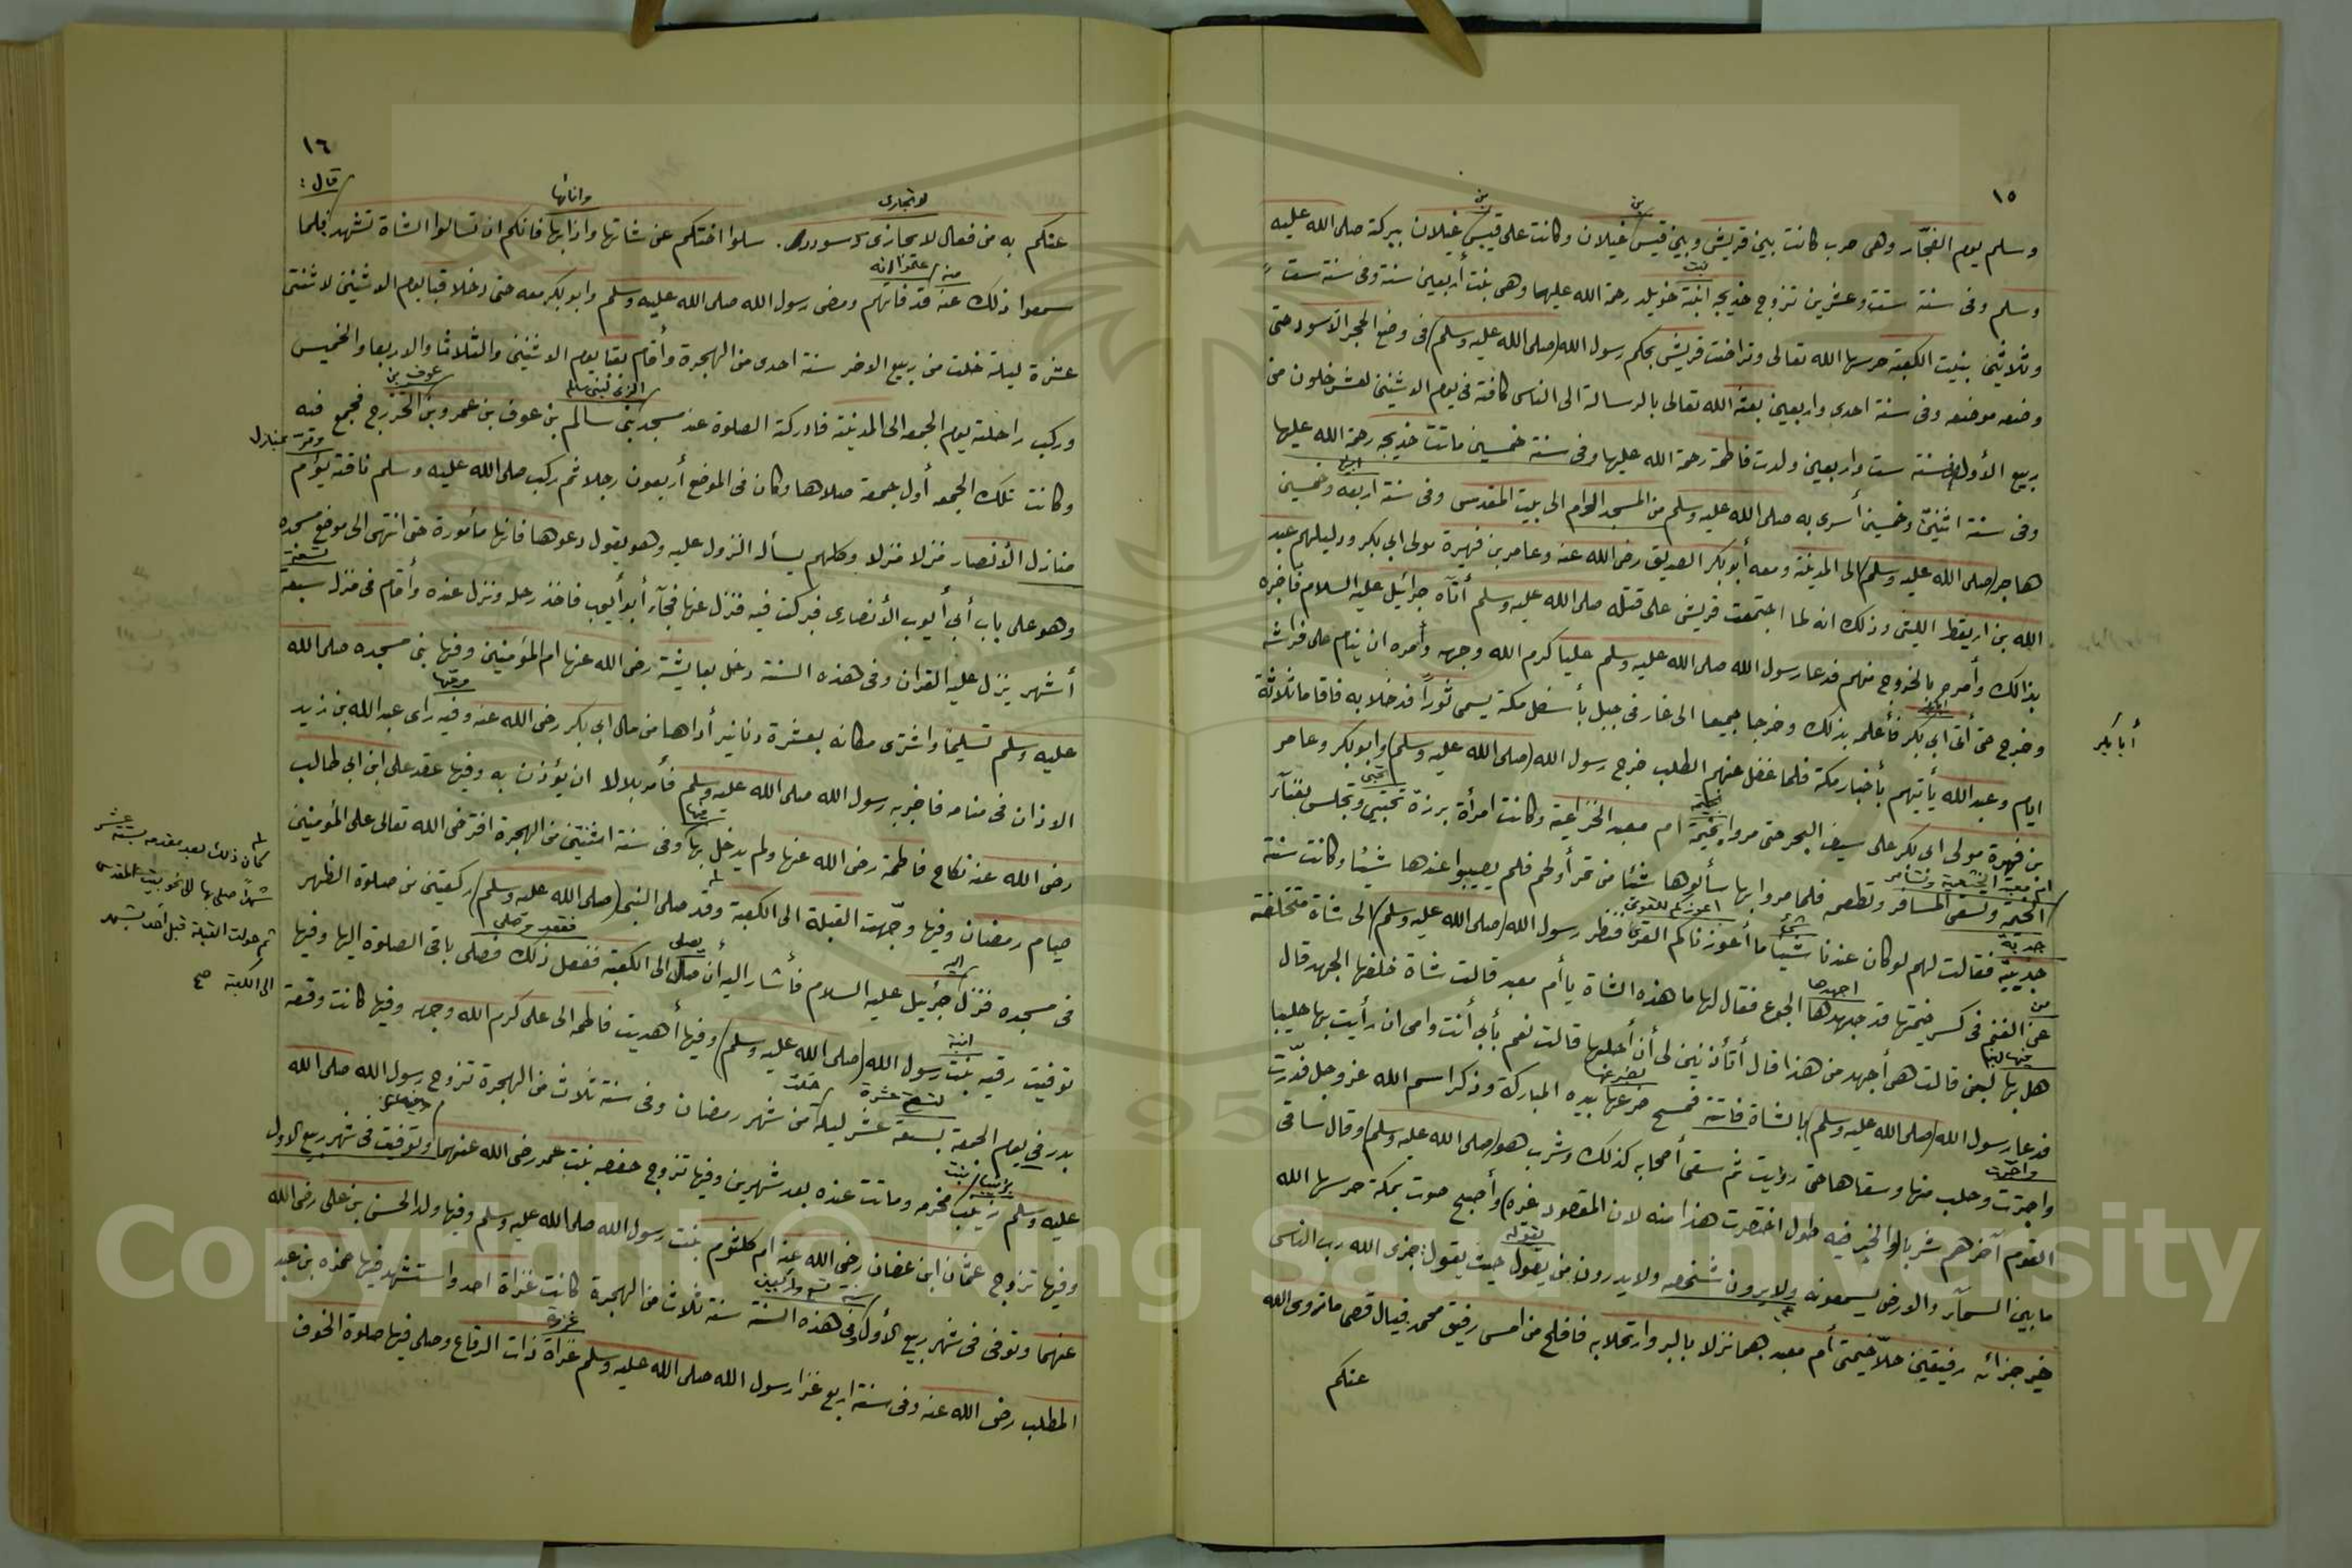 ١٥
وسلم يوم الفجّار وهى حرب كانت بين قريش وبين قيس غيلان وكانت على قيس غيلان ببركة صلى الله عليه
وسلم وفى سنة ستت وعشرين تزوج خديجه ابنة خويلد رحمة الله عليهما وهى بنت أربعين سنة وفى سنة ست
وثلاثين بنيت الكعبة حرسها الله تعالى وتراضت قريش بحكم رسول الله (صلى الله عليه وسلم) فى وضع الحجر الأسود حتى
وضعه موضعه وفى سنة احدى واربعين بعثه الله تعالى بالرسالة الى الناس كافة فى يوم الاثنين لعشر خلون من
ربيع الأول وفى سنة ست واربعين ولدت فاطمة رحمة الله عليها وفى سنة خمسين ماتت خديجه رحمة الله عليها
وفى سنة اثنين وخمسين أسرى به صلى الله عليه وسلم من المسجد الحرام الى بيت المقدس وفى سنة اربعه وخمسين
هاجر (صلى الله عليه وسلم) الى المدينة ومعه أبوبكر الصديق رضى الله عنه وعامر بن فهيرة مولى ابى بكر ودليلهم عبد
الله بن اريقط الليثى وذلك انه لما اجتمعت قريش على قتله صلى الله عليه وسلم أتاه جبرائيل عليه السلام فاخبره
بذالك وأمره بالخروج منهم فدعا رسول الله صلى الله عليه وسلم عليا كرم الله وجهه وأمره ان ينام على فراشه
وخرج حتى أتى ابى بكر فأعلمه بذلك وخرجا جميعا الى غار فى جبل بأسفل مكة يسمى ثوراً فدخلا به فاقاما ثلاثة
أبابكر
ايام وعبد الله يأتيهم بأخبار مكة فلما غفل عنهم الطلب خرج رسول الله (صلى الله عليه وسلم) وابوبكر وعامر
بن فهيرة مولى ابى بكر على سيف البحر حتى مروا بخيمة ام معبد الخزاعية وكانت امرأة برزة تحتبى وتجلس بفناء
الخيمه وتسقى المسافر وتطعمه فلما مروا بها سألوها شئا من تمر أو لحم فلم يصيبوا عندها شيئا وكانت سنة
جدبية فقالت لهم لوكان عندنا شيأ ما أعوزناكم القرى فنظر رسول الله (صلى الله عليه وسلم) الى شاة متخلفة
عن الغنم فى كسر خيمتها قد جهدها الجوع فقال لها ما هذه الشاة يا أم معبد قالت شاة خلفها الجهد قال
هل بها لبن قالت هى أجهد من هذا قال أتأذنين لى أن أحلبها قالت نعم بأبى أنت وامى ان رأيت بها حليبا
فدعا رسول الله (صلى الله عليه وسلم) بالشاة فاتته فمسح ضرعها بيده المباركة وذكر اسم الله عز وجل فدرّت
واجترت وحلب منها وسقاها حتى رويت ثم سقى أصحابه كذلك وشرب هو (صلى الله عليه وسلم) وقال ساقى
القوم آخرهم شربا والخبر فيه طول اختصرت هذا منه لان المقصود غيره) وأصبح صوت بمكة حرسها الله
ما بين السماء والارض يسمعونه ولا يرون شخصه ولا يدرون من يقول حيث يقول: جزى الله رب الناس
خير جزائه رفيقين حلاّ خيمتى أم معبد هما نزلا بالبر وارتحلا به فافلح من امسى رفيق محمد فيال قصى ما زوى الله
عنكم
١٦
عنكم به من فعال لا يجازى وسودد. سلوا اختكم عن شاتها وانايها فانكم ان تسالوا الشاة تشهد فلما
قال:
سمعوا ذلك عنه قد فاتهم ومضى رسول الله صلى الله عليه وسلم وابوبكر معه حتى دخلا قبا يوم الاثنين لاثنتى
عشرة ليلة خلت من ربيع الاخر سنة احدى من الهجرة وأقام بقبا يوم الاثنين والثلاثا والاربعا والخميس
وركب راحلته يوم الجمعه الى المدينة فادركته الصلوة عند مسجد بنى سالم بن عوف بن عمرو بن الخزرج فجمع فيه
وكانت تلك الجمعه أول جمعة صلاها وكان فى الموضع أربعون رجلا ثم ركب صلى الله عليه وسلم ناقته يؤم
منازل الأنصار منزلا منزلا وكلهم يسأله النزول عليه وهو يقول دعوها فانها مأمورة حتى انتهى الى موضع مسجده
وهو على باب أبى أيوب الأنصارى فبركت فيه فنزل عنها فجآء أبو أيوب فاخذ رحله ونزل عنده وأقام فى منزل سبعة
أشهر ينزل عليه القران وفى هذه السنة دخل بعايشة رضى الله عنها ام المؤمنين وفيها بنى مسجده صلى الله
عليه وسلم تسليما واشترى مكانه بعشرة دنانير أداها من مال ابى بكر رضى الله عنه وفيه راى عبد الله بن زيد
الاذان فى منامه فاخبر به رسول الله صلى الله عليه وسلم فأمر بلالا ان يؤذن به وفيها عقد على ابن ابى طالب
رضى الله عنه نكاح فاطمة رضى الله عنها ولم يدخل بها وفى سنة اثنتين من الهجرة افترض الله تعالى على المؤمنين
صيام رمضان وفيها وجّهت القبلة الى الكعبة وقد صلى النبى (صلى الله عليه وسلم) ركعتين من صلوة الظهر
فى مسجده فنزل جبرئيل عليه السلام فأشار اليه أن صل الى الكعبة ففعل ذلك فصلى باقى الصلوة اليها وفيها
توفيت رقيه بنت رسول الله (صلى الله عليه وسلم) وفيها أهديت فاطمه الى على كرم الله وجهه وفيها كانت وقعة
بدر فى يوم الجمعة بسبعة عشر ليلة من شهر رمضان وفى سنة ثلاث من الهجرة تزوج رسول الله صلى الله
عليه وسلم زينب مخزمه وماتت عنده بعد شهرين وفيها تزوج حفصه بنت عمر رضى الله عنهما وتوفيت فى شهر ربيع الاول
وفيها تزوج عثمان ابن عفان رضى الله عنه ام كلثوم بنت رسول الله صلى الله عليه وسلم وفيها ولد الحسن بن على رضى الله
عنهما وتوفى فى شهر ربيع الأول وفى هذه السنة سنة ثلاث من الهجرة كانت غزاة احد واستشهد فيها حمزه بن عبد
المطلب رضى الله عنه وفى سنة اربع غزا رسول الله صلى الله عليه وسلم غزاة ذات الرقاع وصلى فيها صلوة الخوف
كان ذلك بعد مقدمه بستة عشر
شهراً صلى بها الى نحو بيت المقدس
ثم حولت القبلة قبل أحد بشهر
الى الكعبة صح
Copyright © King Saud University
195